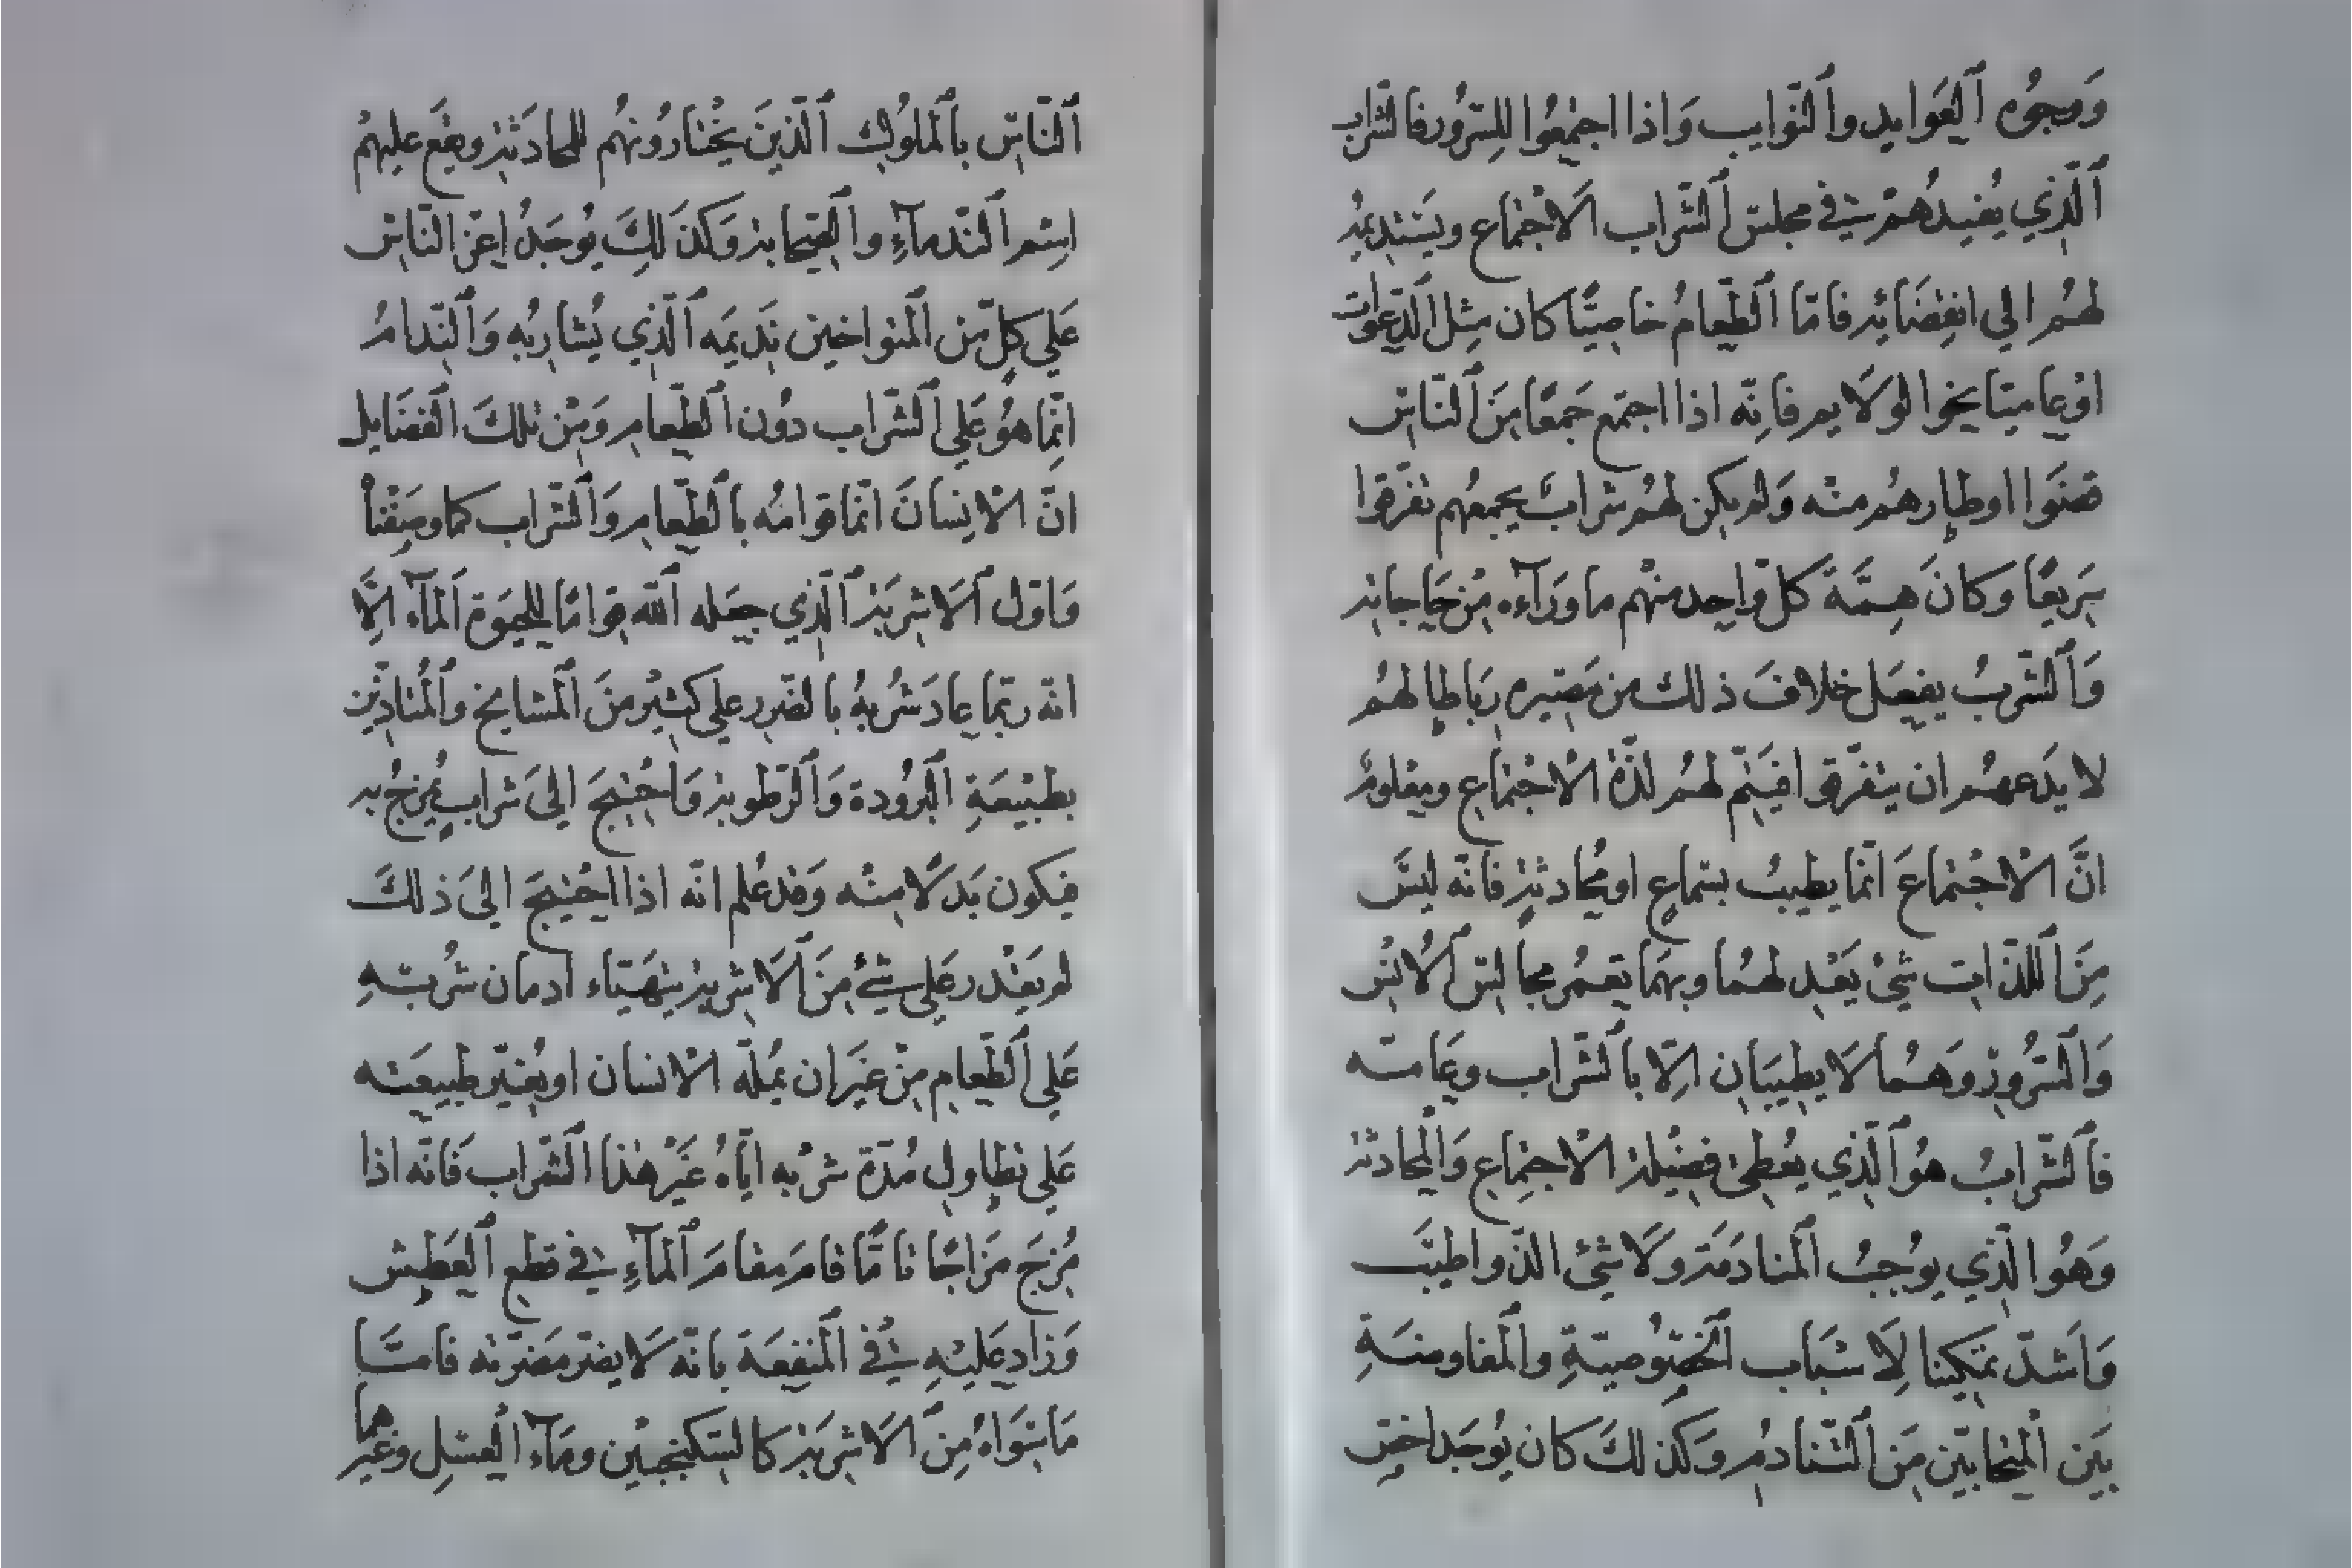 ووجوه العوايد والنوايب واذا اجتمعوا للسرور فالشراب
الذي يفيدهم في مجلس الشراب الاجتماع ويستديمه
لهم الي انقضائه فاما الطعام خاصيا كان مثل الدعوات
او عاميا فانه اذا اجتمع جمعا من الناس
قضوا اوطارهم منه ولم يكن لهم شراب يجمعهم تفرقوا
سريعا وكان همة كل واحد منهم ما وراءه من حاجاته
والشرب يفعل خلاف ذلك من رباطا لهم
لا يدعهم ان يتفرقوا فيتم لهم لذة الاجتماع ومعلوم
ان الاجتماع انما يطيب بسماع او محادثة فانه ليس
من اللذات شئ يعدلهما وبهما تعمر مجالس الانس
والسرور وهما لا يطيبان الا بالشراب وعامته
فالشراب هو الذي يعطى فضيلة الاجتماع والمحادثة
وهو الذي يوجب المنادمة ولا شئ الذ واطيب
واشد تمكينا لاسباب الخصوصية والمفاوضة
بين المتحابين من التنادم وكذلك كان يوجد اخص
الناس بالملوك الذين يختارونهم للمحادثة وضع عليهم
اسم الندماء والصحابة وكذلك يوجد اعز الناس
علي كل من المتواخين نديمه الذي يشاربه والندام
انما هو علي الشراب دون الطعام ومن تلك الفضايل
ان الانسان انما قوامه بالطعام والشراب كما وصفنا
واول الاشربة الذي جعله الله قواما للحيوة الماء الا
انه ربما عاد شربه بالضرر علي كثير من المشايخ والمتادين
بطبيعة البرودة والرطوبة واحتيج الى شراب يمزج به
فيكون بدلا منه وقد علم انه اذا احتيج الى ذلك
لم يقدر علي شئ من الاشربة يتهياء ادمان شربه
علي الطعام من غير ان يمله الانسان او يغير طبيعته
علي تطاول مدة شربه اياه غير هذا الشراب فانه اذا
مزج مزاجا تاما قام مقام الماء في قطع العطش
وزاد عليه في المنفعة بانه لا يضر مضرته فاما
ما سواه من الاشربة كالسكنجبين وماء العسل وغيرهما